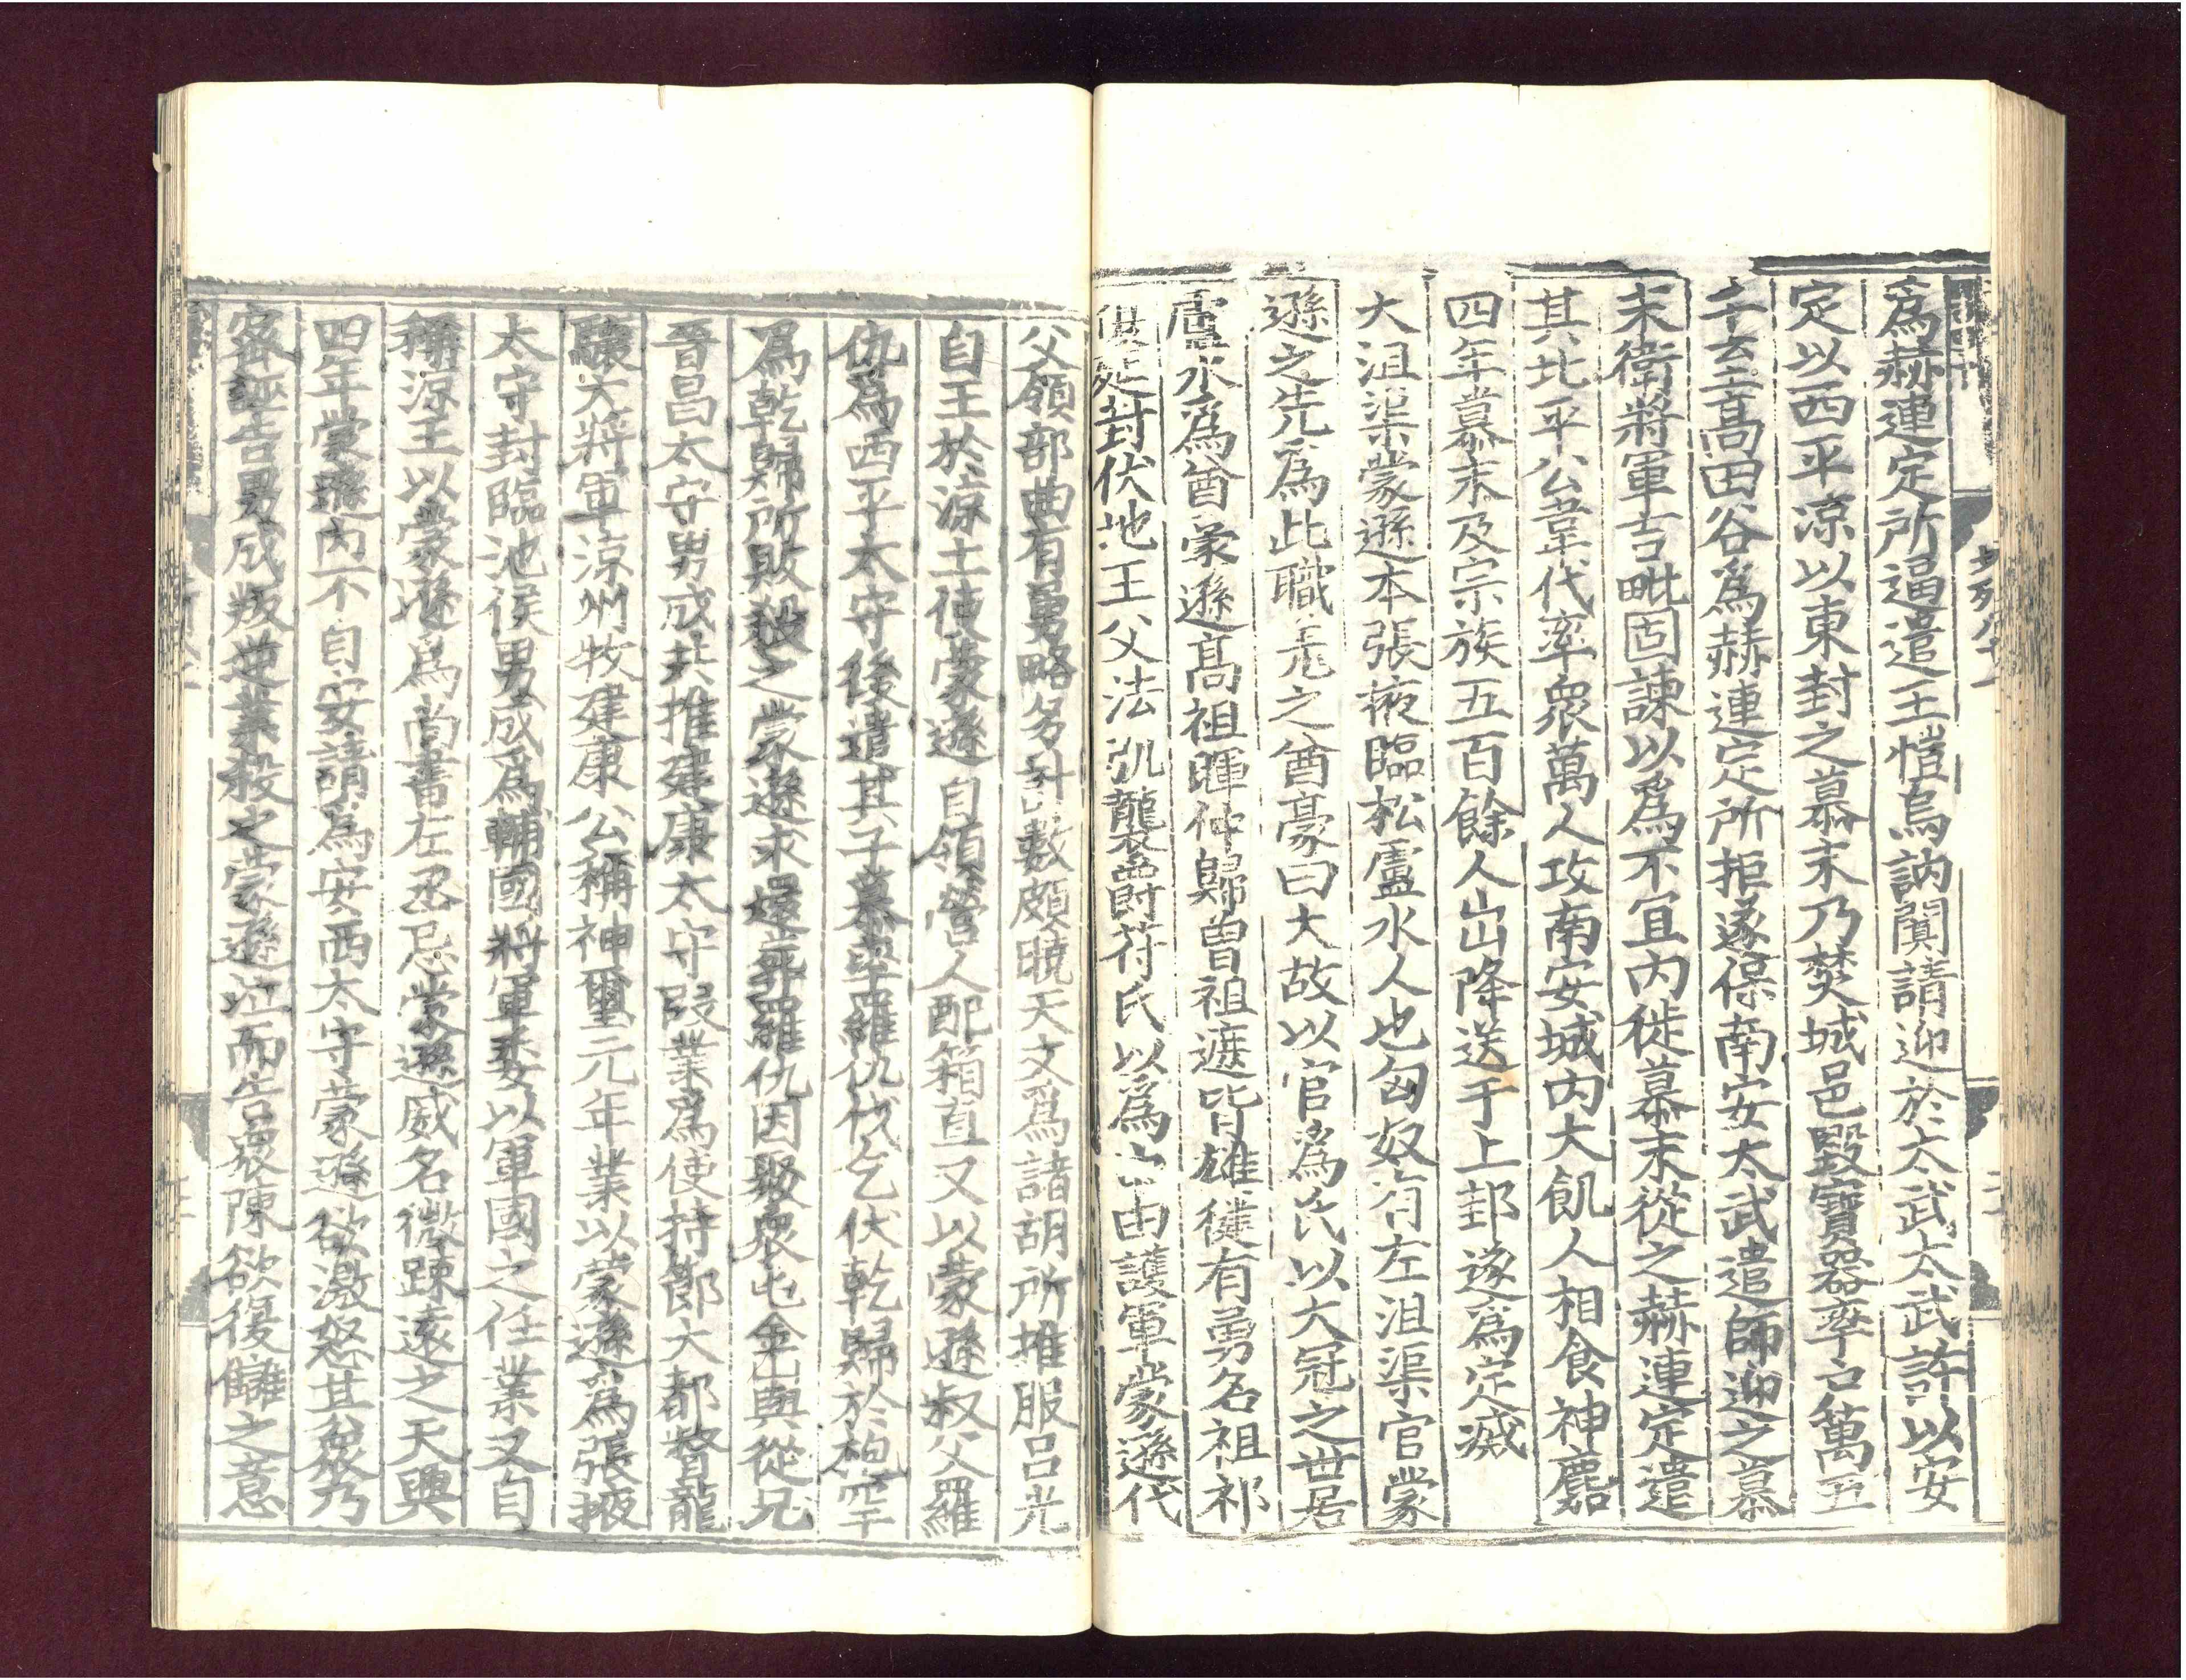 為赫連定所逼遣王愷烏訥闐請迎於太武太武許以安
定以西平涼以東封之慕末乃焚城邑毀寶器率戶萬五
千至高田谷為赫連定所拒遂保南安太武遣師迎之慕
末衛將軍吉毗固諫以為不宜內徙慕末從之赫連定遣
其北平公韋代率眾萬人攻南安城內大飢人相食神䴥
四年慕末及宗族五百餘人出降送于上邽遂為定滅
大沮渠蒙遜本張掖臨松盧水人也匈奴有左沮渠官蒙
遜之先為此職羌之酋豪曰大故以官為氏以大冠之世居
盧水為酋蒙遜高祖暉仲歸曾祖遮皆雄健有勇名祖祁
復延封伏地王父法弘襲爵苻氏以為中田護軍蒙遜代
父領部曲有勇略多計數頗曉天文為諸胡所推服呂光
自王於涼土使蒙遜自領營人配箱直又以蒙遜叔父羅
仇為西平太守後遣其子慕率羅仇伐乞伏乾歸於枹罕
為乾歸所敗殺之蒙遜求還葬羅仇因聚眾屯金山與從兄
晉昌太守男成共推建康太守段業為使持節大都督龍
驤大將軍涼州牧建康公稱神璽元年業以蒙遜為張掖
太守封臨池侯男成為輔國將軍委以軍國之任業又自
稱涼王以蒙遜為尚書左丞忌蒙遜威名微疎遠之天興
四年蒙遜內不自安請為安西太守蒙遜欲激怒其眾乃
密誣告男成叛逆業殺之蒙遜泣而告眾陳欲復讎之意